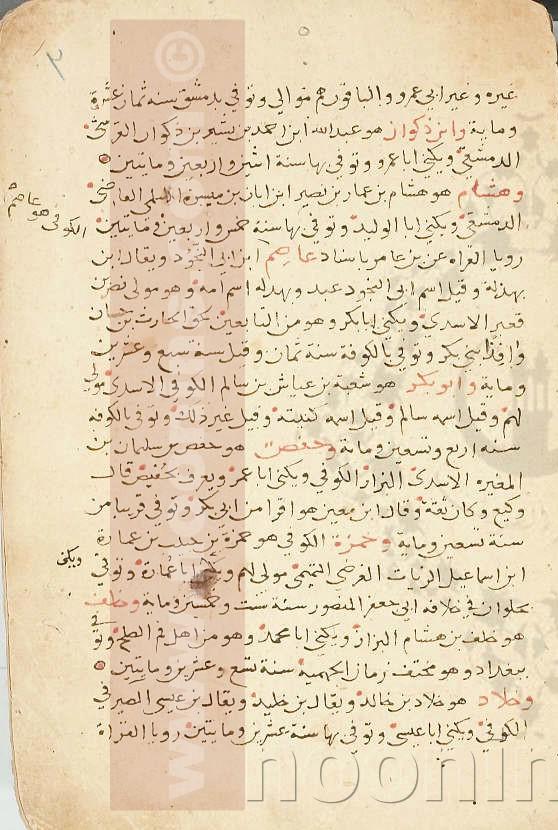 ٢
غيره وغير ابي عمرو والباقون هم موالي وتوفي بدمشق سنة ثمان عشرة
وماية وابن ذكوان هو عبد الله ابن احمد بن بشير بن ذكوان القرشي
الدمشقي ويكنى ابا عمرو وتوفي بها سنة اثنين واربعين ومايتين
وهشام هو هشام بن عمار بن نصير ابن ابان بن ميسرة السلمي القاضي
الدمشقي ويكنى ابا الوليد وتوفي بها سنة خمس واربعين ومايتين
رويا القراه عن بن عامر باسناد عاصم ابن ابي النجود ويقال ابن
بهدلة وقيل اسم ابي النجود عبد وبهدلة اسم امه وهو مولى نصر بن
قعين الاسدي ويكنى ابا بكر وهو من التابعين لحق الحارث بن حسان
وافد بني بكر وتوفي بالكوفة سنة ثمان وقيل سنة سبع وعشرين
وماية وابو بكر هو شعبة بن عياش بن سالم الكوفي الاسدي مولى
لهم وقيل اسمه سالم وقيل اسمه كنيته وقيل غير ذلك وتوفي بالكوفه
سنه اربع وتسعين وماية وحفص هو حفص بن سليمان بن
المغيره الاسدي البزاز الكوفي ويكنى ابا عمر ويعرف بحفيص قال
وكيع وكان ثقة وقال ابن معين هو اقرا من ابي بكر وتوفي قريبا من
سنة تسعين وماية وحمزة الكوفي هو حمزة بن حبيب بن عمارة
ابن اسماعيل الزيات الفرضي التميمي مولى لهم ويكنى ابا عمارة وتوفي
بحلوان في خلافه ابي جعفر المنصور سنة ست وخمسين وماية وخلف
هو خلف بن هشام البزار ويكنى ابا محمد وهو من اهل فم الصلح وتوفي
ببغداد وهو مختف زمان الجهمية سنة تسع وعشرين ومايتين
وخلاد هو خلاد بن خالد ويقال بن خليد ويقال بن عيسى الصيرفي
الكوفي ويكنى ابا عيسى وتوفي بها سنة عشرين ومايتين رويا القراة
عاصم
هو
الكوفي
ويكنى
www.
noonin